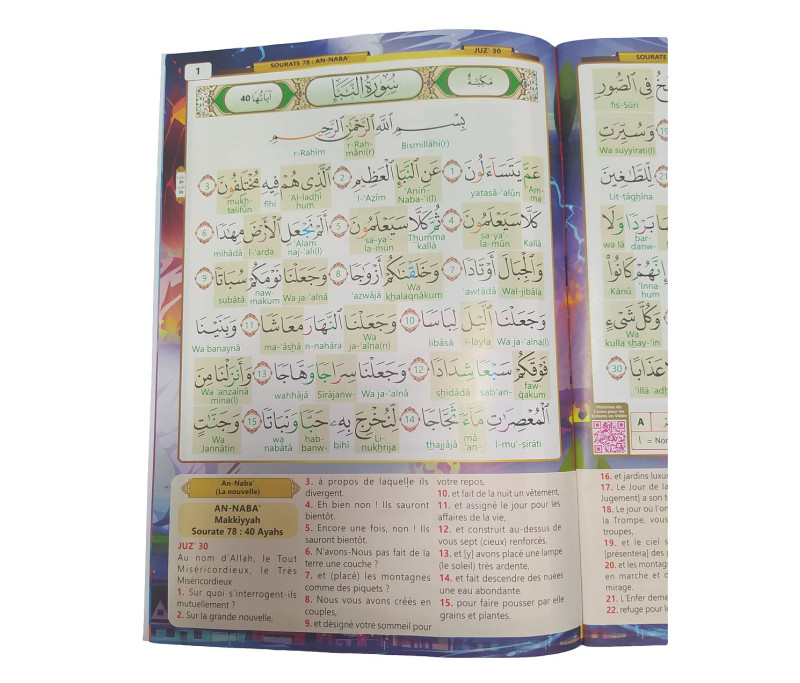 SOURATE 78 : AN-NABA'
JUZ' 30
1
مَكِّيَّةٌ
سُورَةُ النَّبَإِ
آيَاتُهَا 40
بِسْمِ اللَّهِ الرَّحْمَٰنِ الرَّحِيمِ
Bismillāhi(r) r-Rah-māni(r) r-Rahīm
عَمَّ يَتَسَاءَلُونَ 1 عَنِ النَّبَإِ الْعَظِيمِ 2 الَّذِي هُمْ فِيهِ مُخْتَلِفُونَ 3
'Am-ma yatasā-'alūn 'Anin-Naba-'i(l) l-'Aẓīm 'Al-ladhī hum fīhi mukh-talifūn
كَلَّا سَيَعْلَمُونَ 4 ثُمَّ كَلَّا سَيَعْلَمُونَ 5 أَلَمْ نَجْعَلِ الْأَرْضَ مِهَادًا 6
Kallā sa-ya'-la-mūn Thumma kallā sa-ya'-la-mūn 'Alam naj-'ali(l) l-'arḍa mihādā
وَالْجِبَالَ أَوْتَادًا 7 وَخَلَقْنَاكُمْ أَزْوَاجًا 8 وَجَعَلْنَا نَوْمَكُمْ سُبَاتًا 9
Wal-jibāla 'awtādā Wa khalaqnākum 'azwājā Wa ja-'alnā naw-makum subātā
وَجَعَلْنَا اللَّيْلَ لِبَاسًا 10 وَجَعَلْنَا النَّهَارَ مَعَاشًا 11 وَبَنَيْنَا
Wa ja-'alna(l) l-layla libāsā Wa ja-'alna(n) n-nahāra ma-'āshā Wa banaynā
فَوْقَكُمْ سَبْعًا شِدَادًا 12 وَجَعَلْنَا سِرَاجًا وَهَّاجًا 13 وَأَنْزَلْنَا مِنَ
faw-qakum sab'an- shidādā Wa ja-'alnā Sirājanw- wahhājā Wa 'anzalnā mina(l)
الْمُعْصِرَاتِ مَاءً ثَجَّاجًا 14 لِّنُخْرِجَ بِهِ حَبًّا وَنَبَاتًا 15 وَجَنَّاتٍ
l-mu'-ṣirāti mā-'an- thajjājā Li-nukhrija bihī hab-banw- wa nabātā Wa Jannātin
An-Naba'
(La nouvelle)
AN-NABA'
Makkiyyah
Sourate 78 : 40 Ayahs
JUZ' 30
Au nom d'Allah, le Tout
Miséricordieux, le Très
Miséricordieux
1. Sur quoi s'interrogent-ils
mutuellement ?
2. Sur la grande nouvelle,
3. à propos de laquelle ils
divergent.
4. Eh bien non ! Ils sauront
bientôt.
5. Encore une fois, non ! Ils
sauront bientôt.
6. N'avons-Nous pas fait de la
terre une couche ?
7. et (placé) les montagnes
comme des piquets ?
8. Nous vous avons créés en
couples,
9. et désigné votre sommeil pour
votre repos,
10. et fait de la nuit un vêtement,
11. et assigné le jour pour les
affaires de la vie,
12. et construit au-dessus de
vous sept (cieux) renforcés,
13. et [y] avons placé une lampe
(le soleil) très ardente,
14. et fait descendre des nuées
une eau abondante.
15. pour faire pousser par elle
grains et plantes.
SOURATE
فِي الصُّورِ
fis-Sūri
وَسُيِّرَتِ 19
Wa suyyirati(l)
لِلطَّاغِينَ 21
Liṭ-ṭāghīna
بَرْدًا وَلَا
bar-danw- wa lā
إِنَّهُمْ كَانُوا
'Inna-hum Kānū
وَكُلَّ شَيْءٍ
Wa kulla shay-'in
عَذَابًا 30
'illā
A
= Nor
16. et jardins luxu
17. Le Jour de la
Jugement) a son t
18. Le jour où l'on
la Trompe, vous
troupes,
19. et le ciel s
(présentera) des p
20. et les montag
en marche et d
mirage.
21. L'Enfer deme
22. refuge pour le